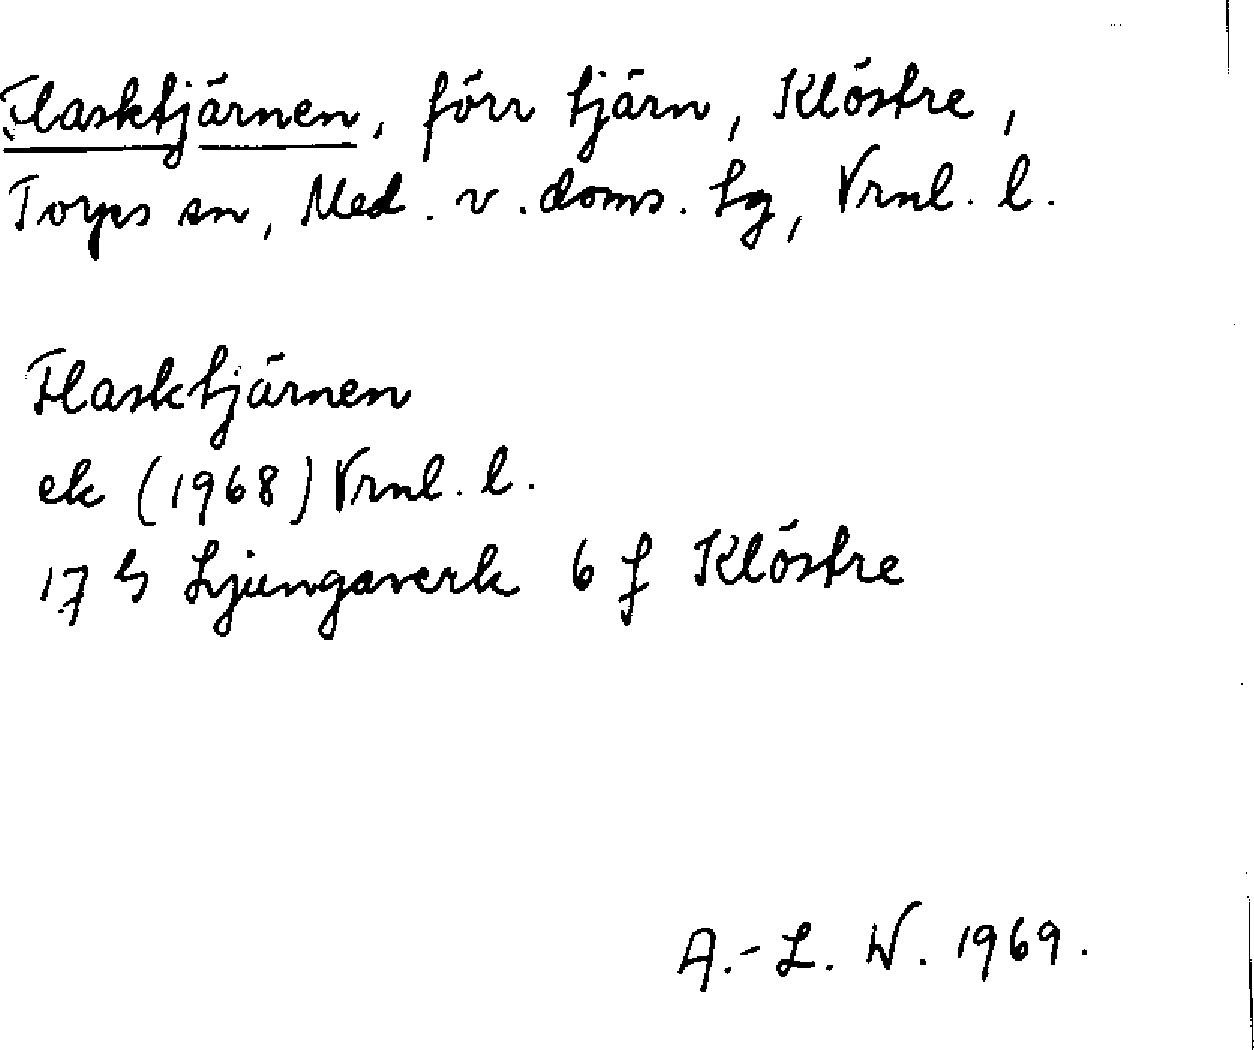 Flasktjärnen, förr tjärn, Klöstre,
Torps sn, Med. v. doms. tg, Vrnl. l.
Flasktjärnen
ek (1968) Vrnl. l.
17 H Ljungaverk 6 f Klöstre
A.-L. W. 1969.